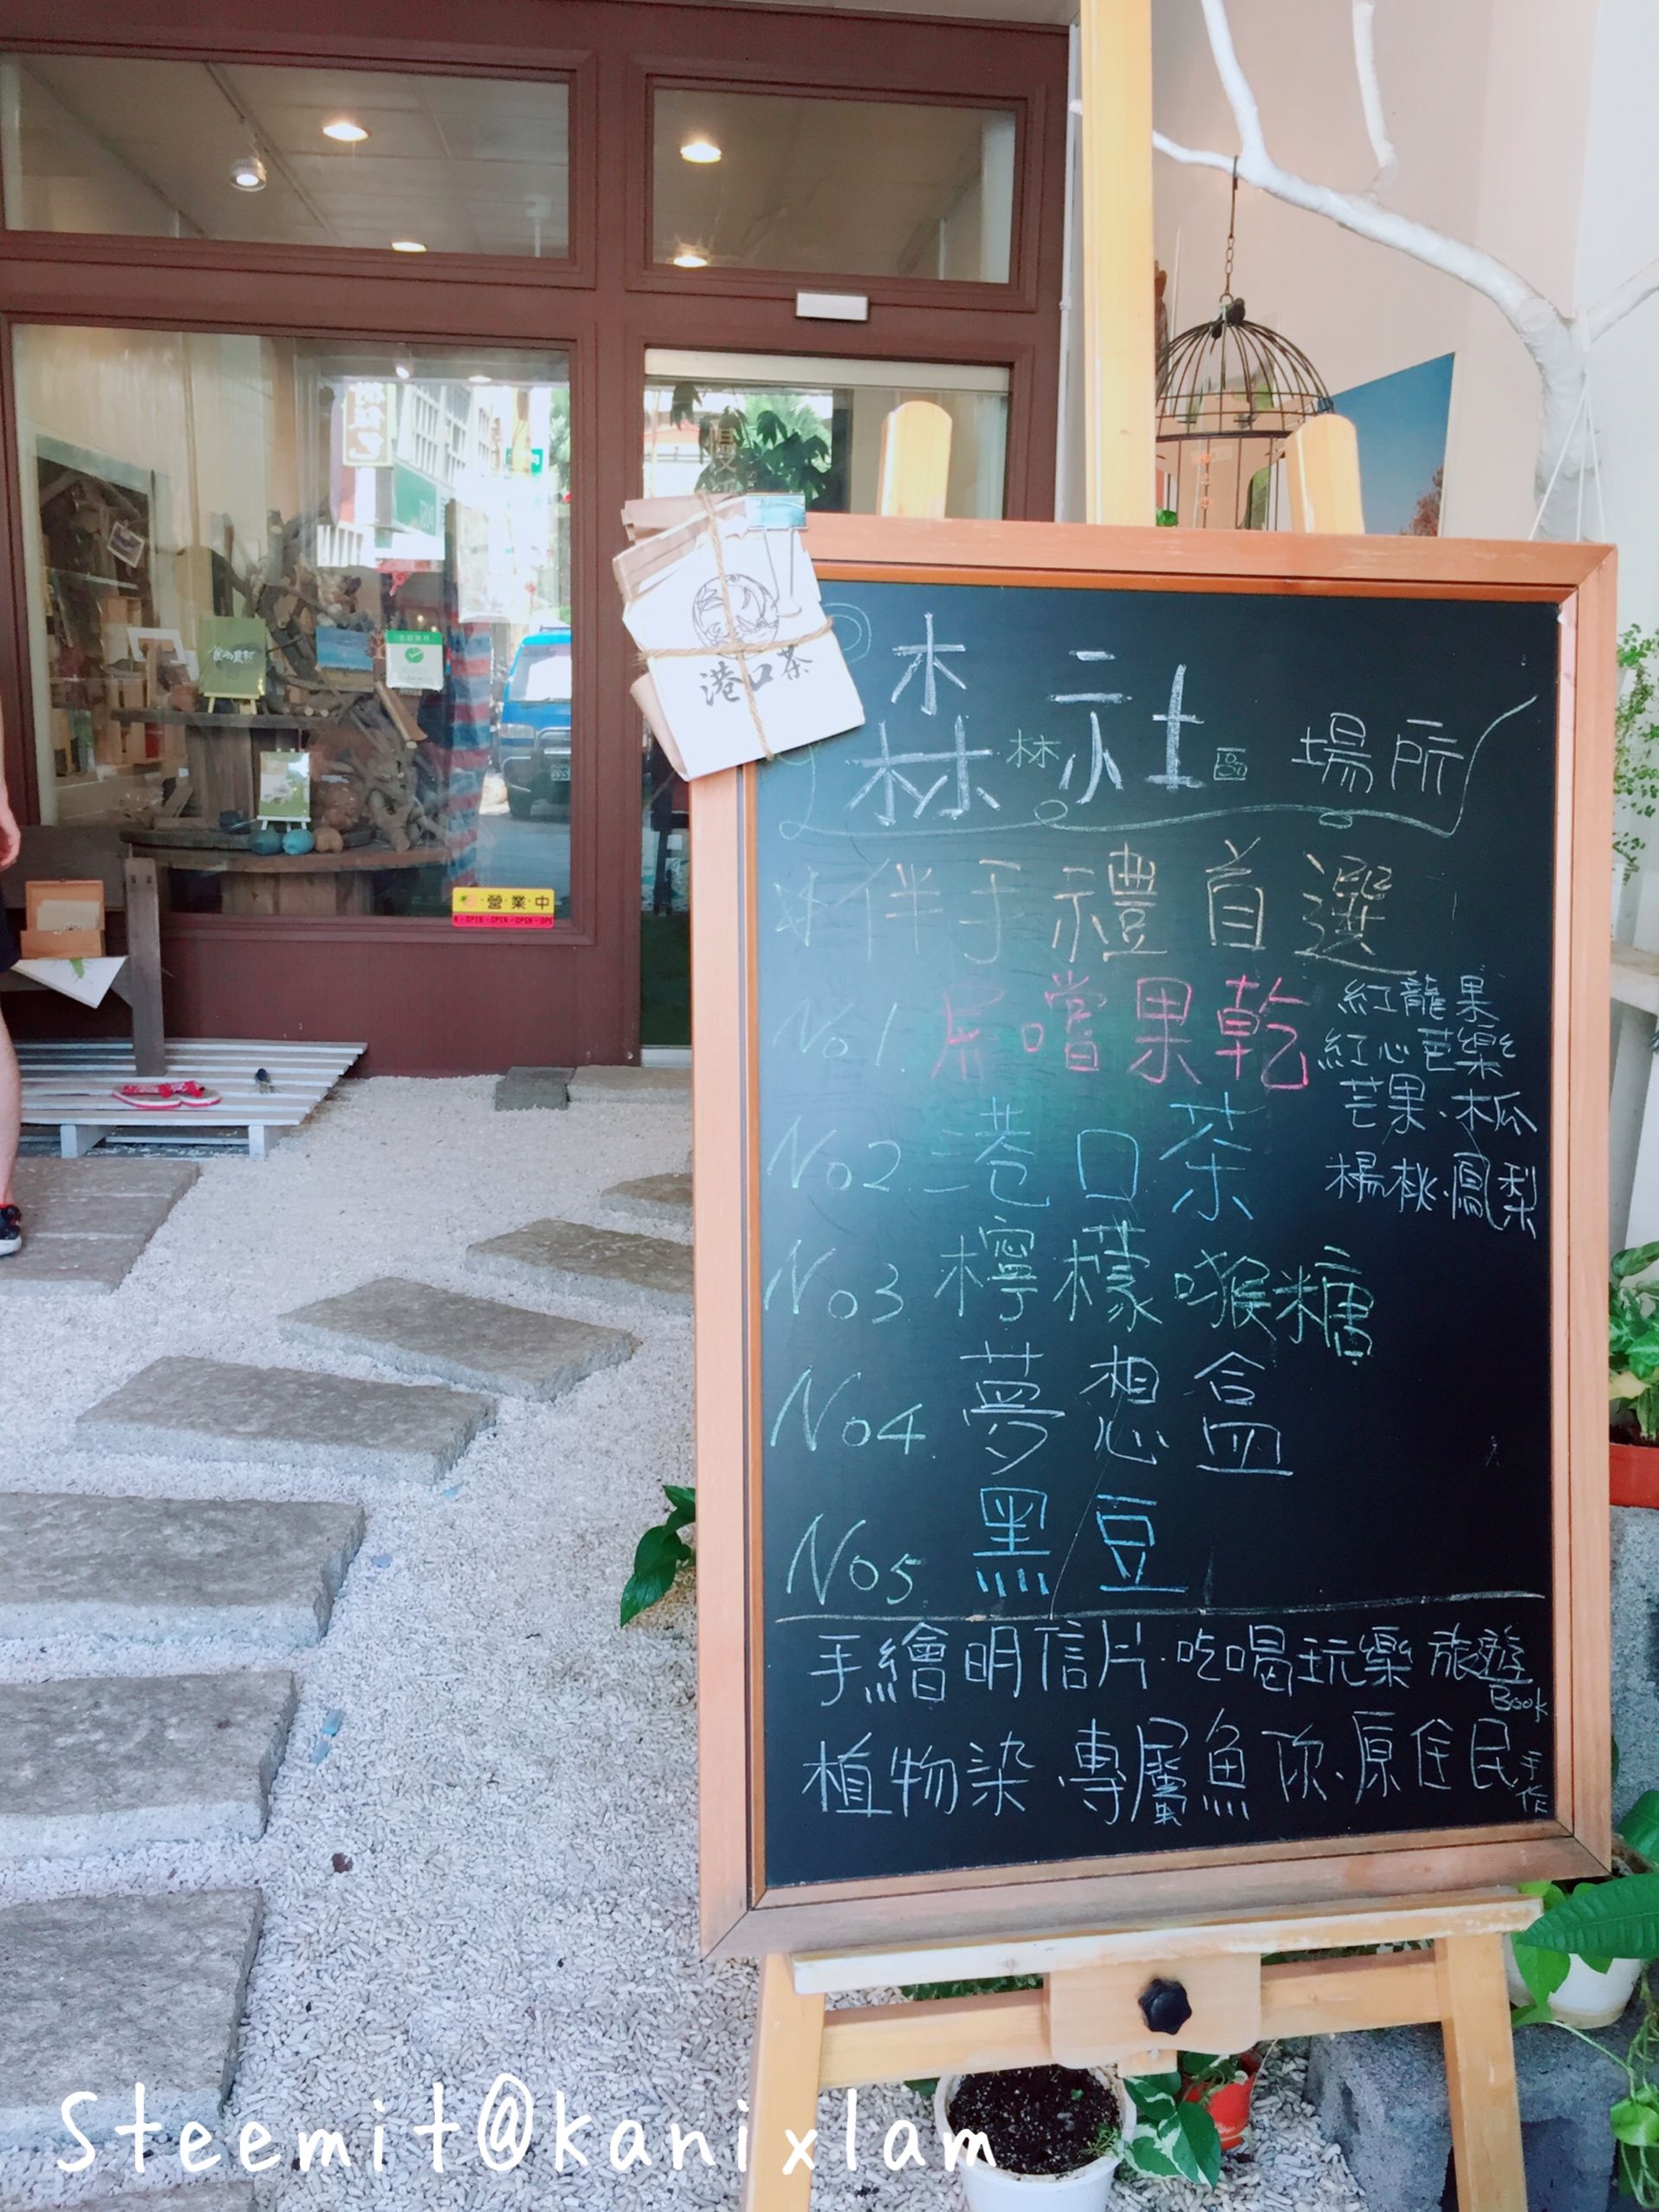 森林社區 場所
伴手禮首選
No1. 屏嚐果乾
紅龍果
紅心芭樂
芒果、木瓜
楊桃、鳳梨
No2 港口茶
No3 檸檬喉糖
No4 夢想盒
No5 黑豆
手繪明信片・吃喝玩樂 旅遊
Book
植物染 專屬魚
原住民手作
港口茶
營業中
Steemit@kanixlam